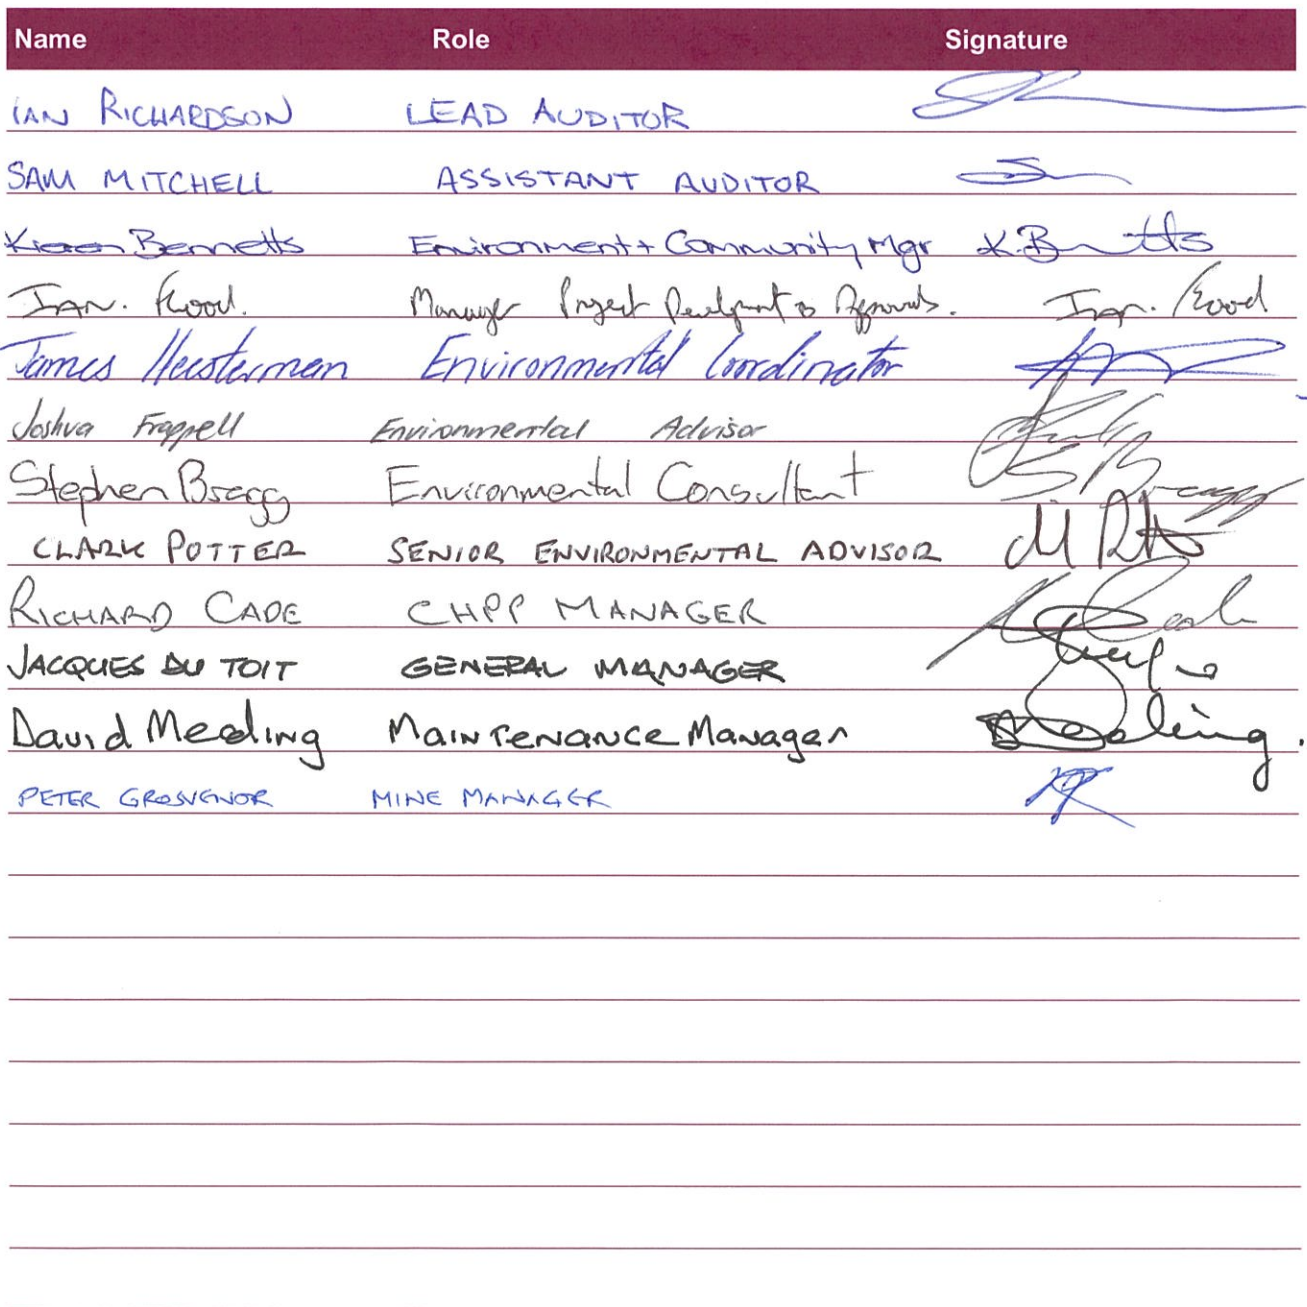 Name Role Signature
IAN RICHARDSON LEAD AUDITOR
SAM MITCHELL ASSISTANT AUDITOR
Kieren Bennetts Environment + Community Mgr K.Bennetts
IAN. Flood. Manager Project Development & Approvals. Ian. Flood
James Heesterman Environmental Coordinator
Joshua Frappell Environmental Advisor
Stephen Bragg Environmental Consultant S Bragg
CLARK POTTER SENIOR ENVIRONMENTAL ADVISOR
RICHARD CADE CHPP MANAGER
JACQUES DU TOIT GENERAL MANAGER
David Meeling Maintenance Manager
PETER GROSVENOR MINE MANAGER